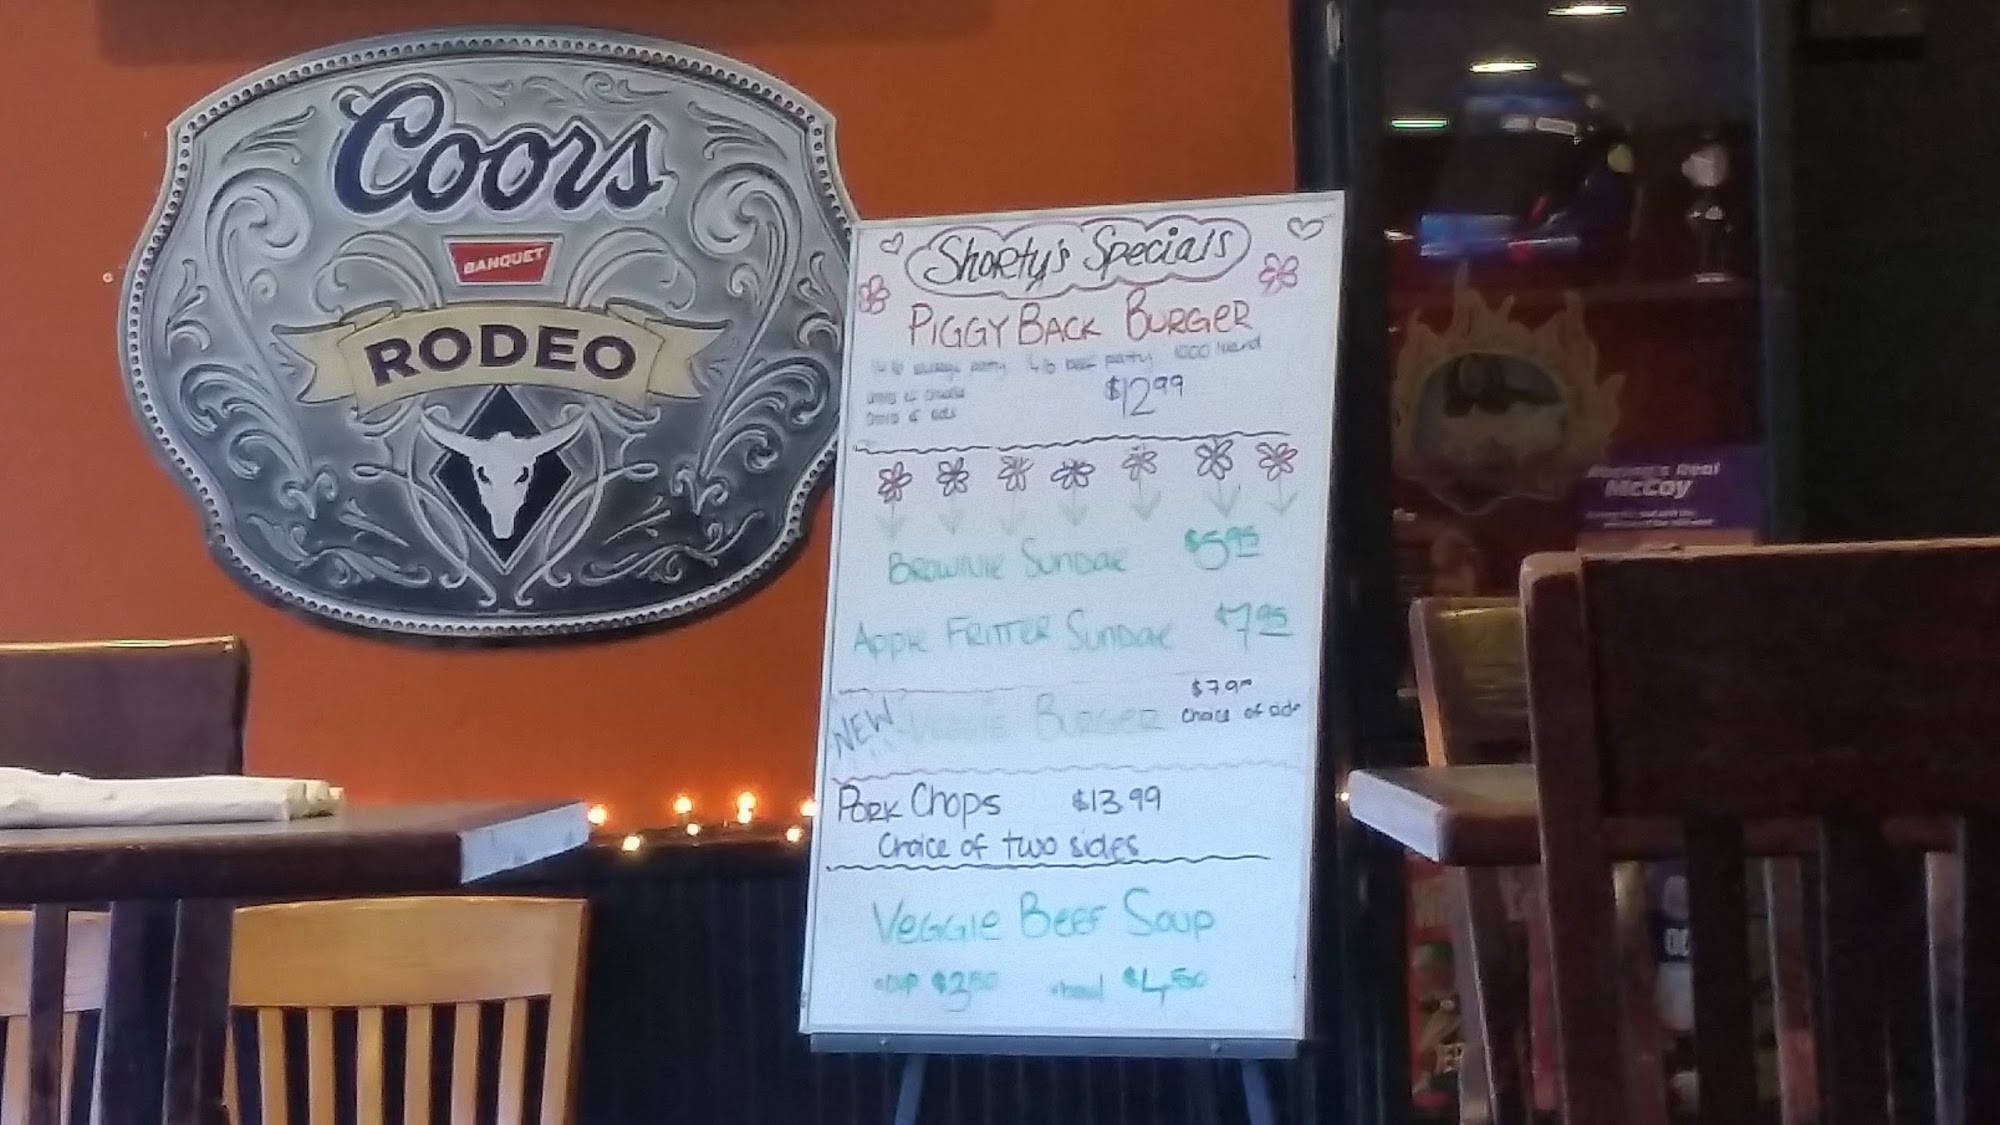 Coors
BANQUET
RODEO
Shorty's Specials
PIGGYBACK BURGER
1/4 lb sausage patty 1/4 lb beef patty
$12.99
Brownie Sundae $5.95
Apple Fritter Sundae $7.95
NEW Veggie Burger
Choice of side
Pork Chops $13.99
Choice of two sides
Veggie Beef Soup
cup $3.50 bowl $4.50
Racing's Real
McCoy